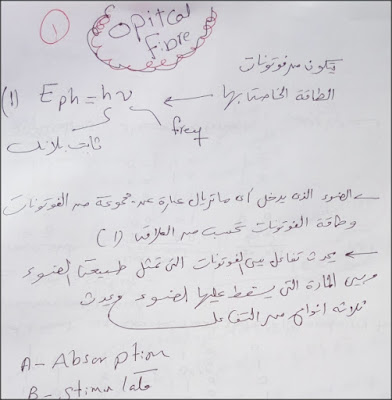 ١
Opitcal
Fibre
يتكون من فوتونات
(1) Eph = hν
الطاقة الخاصة بها
freq
ثابت بلانك
الضوء الذى يدخل أى ماتريال عبارة عن مجموعة من الفوتونات
وطاقة الفوتونات تحسب من العلاقة (1)
يحدث تفاعل بين الفوتونات التى تمثل طبيعة الضوء
وبين المادة التى يسقط عليها الضوء ويحدث
ثلاثة انواع من التفاعل
A - Absorption
B - Stimula